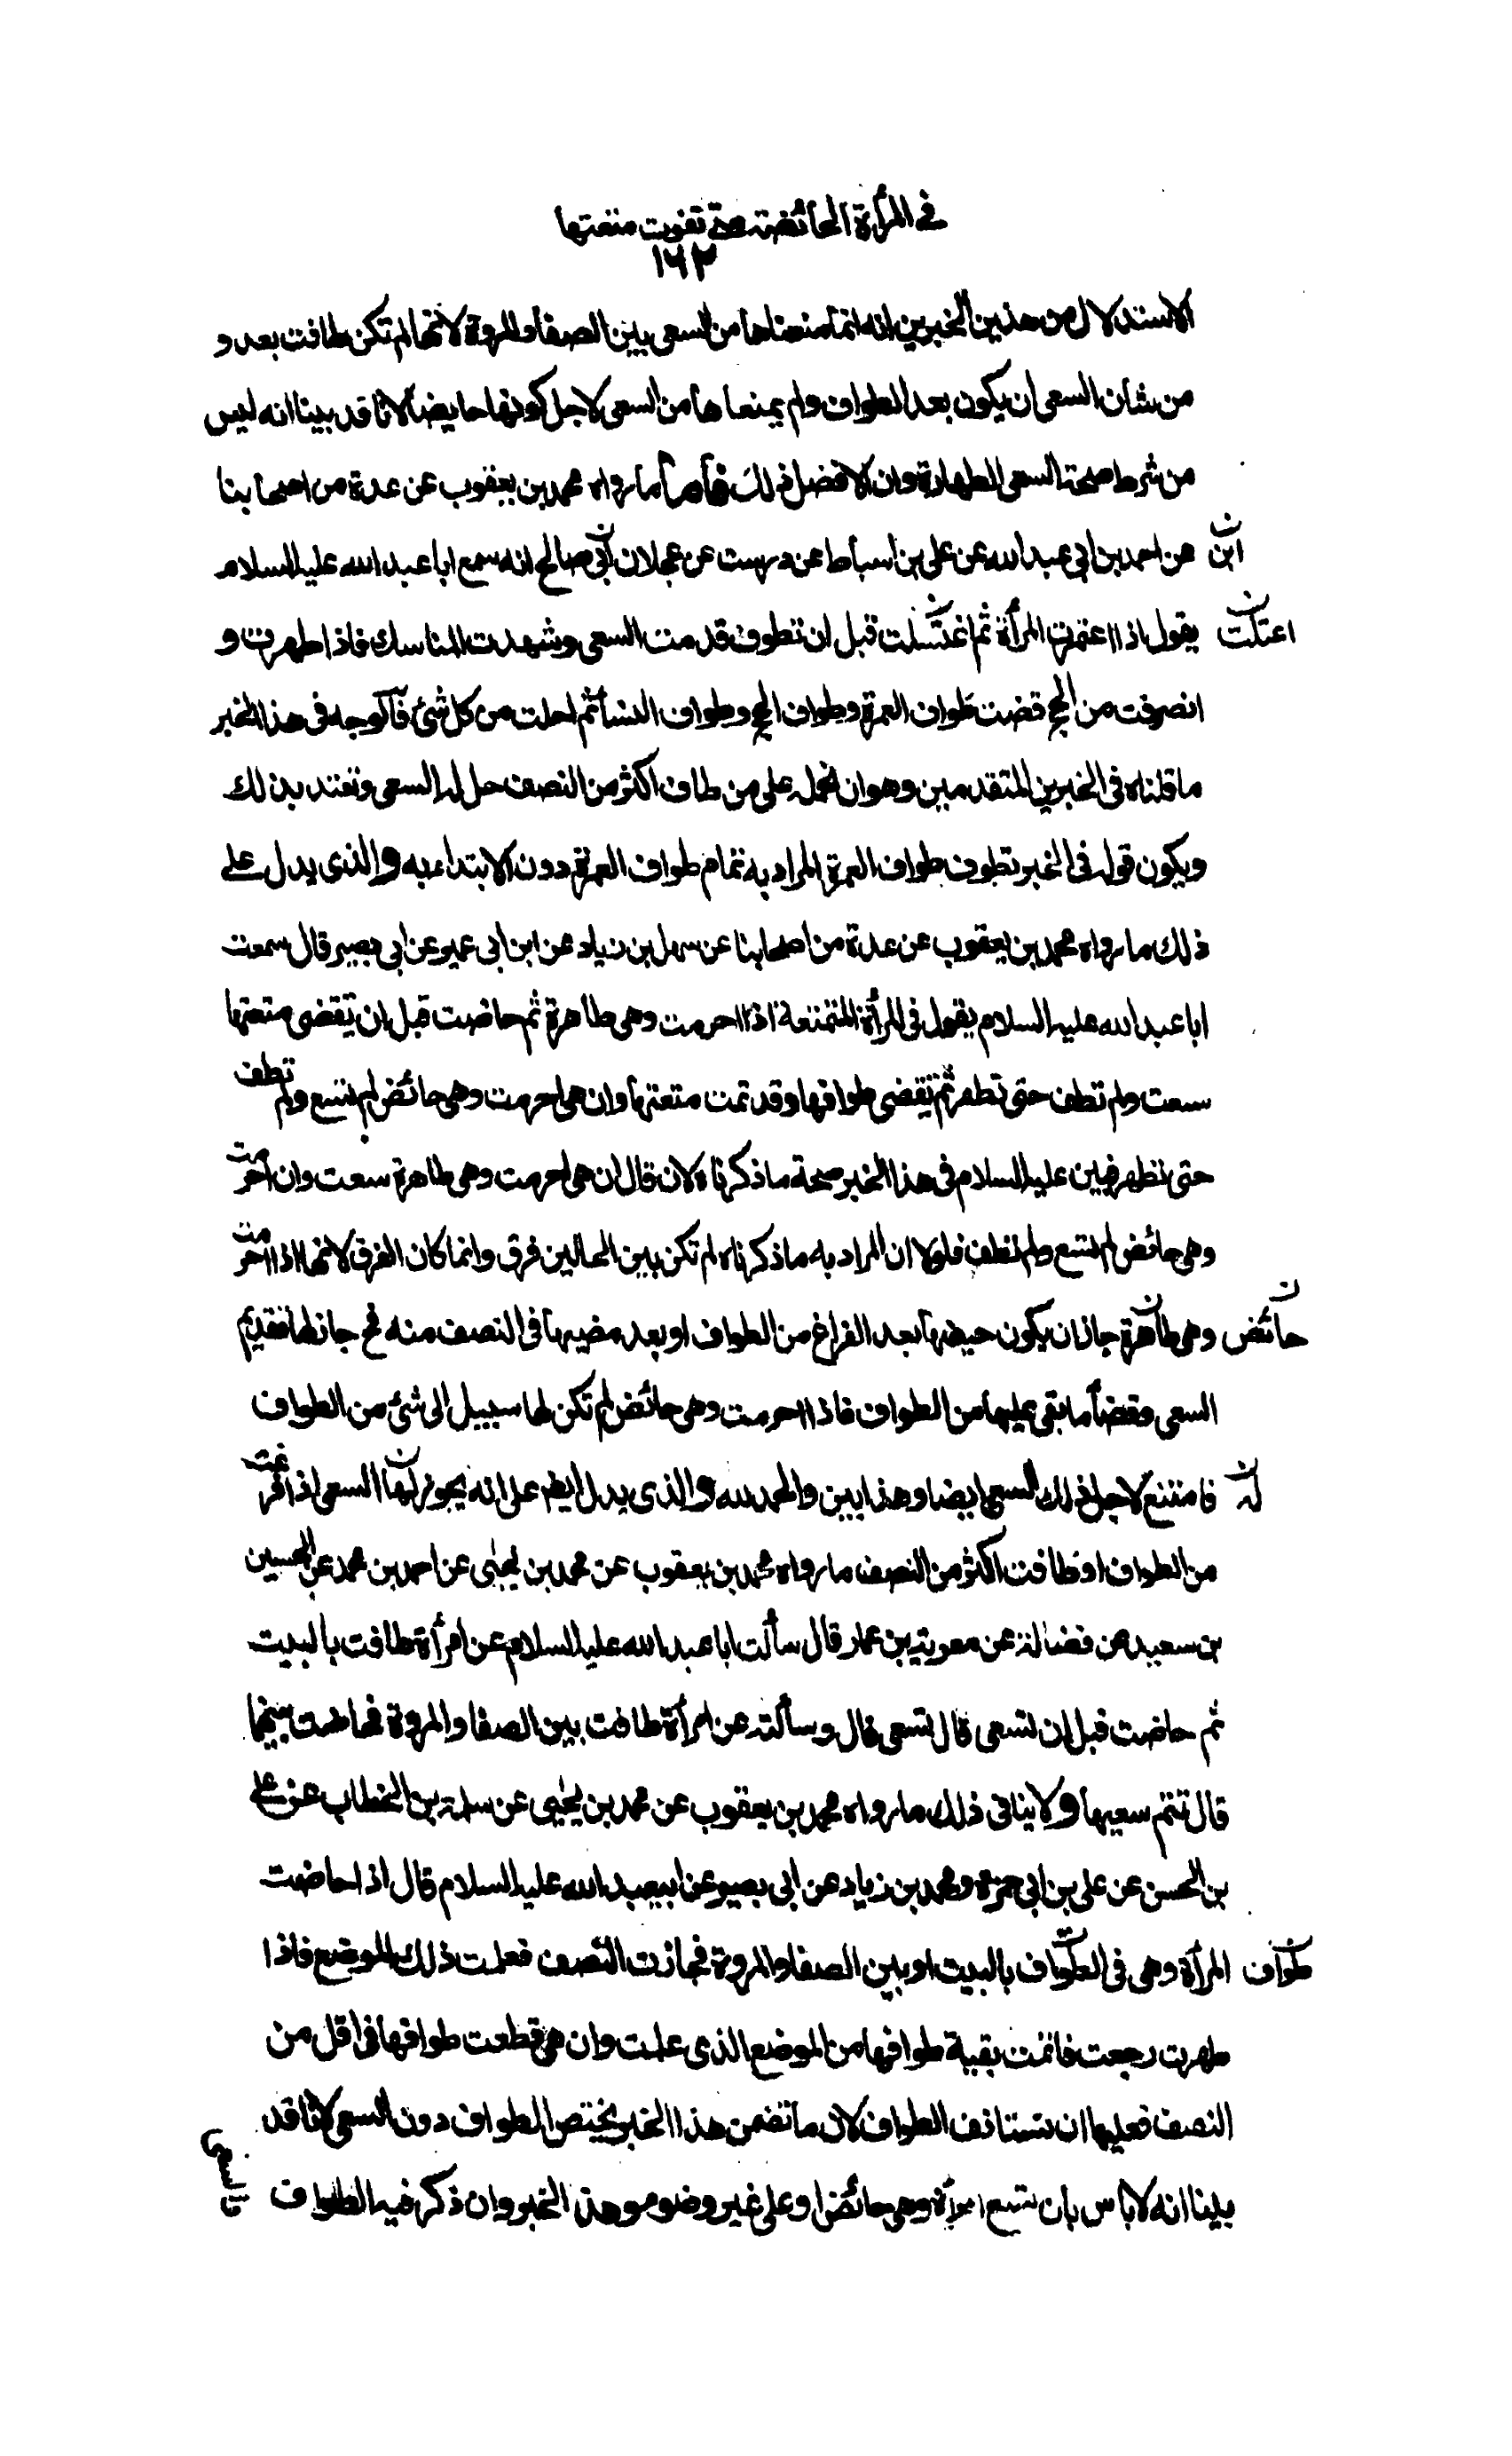 في المرأة الحائضة متى تفوت متعتها
١٦٢
الاستدلال من هذين الخبرين انه انما منعناها من السعى بين الصفا والمروة لانها لم تكن طافت بعد و
من شأن السعى ان يكون بعد الطواف ولم يمنعاها من السعى لاجل كونها حايضا لانا قد بينا انه ليس
من شرط صحة السعى الطهارة وان الافضل ذلك فأما ما رواه محمد بن يعقوب عن عدة من اصحابنا
ابن ن عن احمد بن ابى عبد الله عن على بن اسباط عن درست عن عجلان ابى صالح انه سمع ابا عبد الله عليه السلام
اعتلت ن يقول اذا اعتمرت المرأة ثم اغتسلت قبل ان تطوف قدمت السعى وشهدت المناسك فاذا طهرت و
انصرفت من الحج قضت طواف العمرة وطواف الحج وطواف النساء ثم احلت من كل شئ فالوجه فى هذا الخبر
ما قلناه فى الخبرين المتقدمين وهو ان نحمله على من طاف اكثر من النصف حل له السعى وتعتد بذلك
ويكون قوله فى الخبر تطوف طواف العمرة المراد به تمام طواف العمرة دون الابتداء به والذى يدل على
ذلك ما رواه محمد بن يعقوب عن عدة من اصحابنا عن سهل بن زياد عن ابن ابى عمير عن ابى بصير قال سمعت
ابا عبد الله عليه السلام يقول فى المرأة المتمتعة اذا احرمت وهى طاهرة ثم حاضت قبل ان تقضى متعتها
سعت ولم تطف حتى تطهر ثم تقضى طوافها وقد تمت متعتها وان هى احرمت وهى حائض لم تسع ولم تطف
حتى تطهر فبين عليه السلام فى هذا الخبر صحة ما ذكرناه لان قال ان هى احرمت وهى طاهرة سعت وان احرمت
وهى حائض لم تسع ولم تطف فلولا ان المراد به ما ذكرناه لم تكن بين الحالين فرق وانما كان الفرق لانها اذا احرمت
حائض ن وهى طاهرة جاز ان يكون حيضها بعد الفراغ من الطواف او بعد مضيها فى النصف منه فح جاز لها تقديم
السعى وقضاء ما بقى عليها من الطواف فاذا احرمت وهى حائض لم تكن لها سبيل الى شئ من الطواف
له ن فامتنع لاجل ذلك السعى ايضا وهذا بين والحمد لله والذى يدل ايضا على انه يجوز لها السعى اذا فرغت
من الطواف او طافت اكثر من النصف ما رواه محمد بن يعقوب عن محمد بن يحيى عن احمد بن محمد عن الحسين
بن سعيد عن فضالة عن معوية بن عمار قال سألت ابا عبد الله عليه السلام عن امرأة طافت بالبيت
ثم حاضت قبل ان تسعى قال تسعى قال وسألته عن امرأة طافت بين الصفا والمروة فحاضت بينهما
قال تتم سعيها ولا ينافى ذلك ما رواه محمد بن يعقوب عن محمد بن يحيى عن سلمة بن الخطاب عن على
بن الحسن عن على بن ابى حمزة ومحمد بن زياد عن ابى بصير عن ابيعبد الله عليه السلام قال اذا حاضت
طواف ن المرأة وهى فى الطواف بالبيت او بين الصفا والمروة فجازت النصف فعلمت ذلك الموضع فاذا
طهرت رجعت فاتمت بقية طوافها من الموضع الذى علمت وان هى قطعت طوافها فى اقل من
النصف فعليها ان تستانف الطواف لان ما تضمن هذا الخبر يختص الطواف دون السعى لانا قد
بينا انه لا باس بان تسع امرأة وهى حائض او على غير وضوء وهذا الخبر وان ذكر فيه الطواف